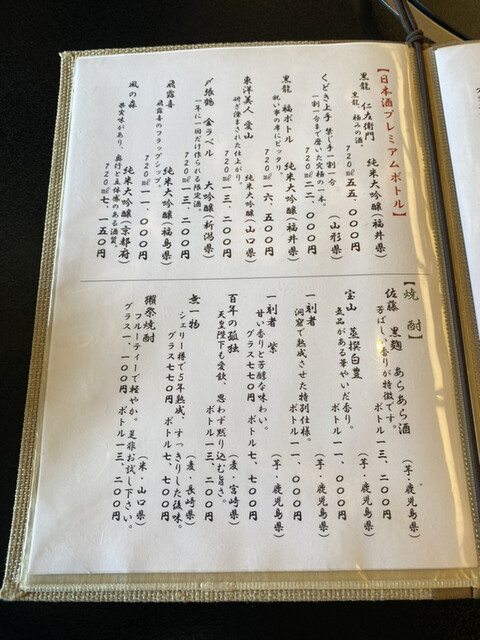 【日本酒プレミアムボトル】
黒龍 仁左衛門 純米大吟醸(福井県)
黒龍、極みの酒。 720㎖ 五五、〇〇〇円
くどき上手 禁じ手一割一分 (山形県)
一割一分まで磨いた究極の一本。 720㎖ 二二、〇〇〇円
黒龍 福ボトル 純米大吟醸(福井県)
祝い事の席にピッタリ。 720㎖ 一六、五〇〇円
東洋美人 愛山 純米大吟醸(山口県)
研ぎ澄まされた仕上がり。 720㎖ 一三、二〇〇円
〆張鶴 金ラベル 大吟醸(新潟県)
一年に一回だけ作られる限定酒。 720㎖ 一三、二〇〇円
飛露喜 純米大吟醸(福島県)
飛露喜のフラッグシップ。 720㎖ 一一、〇〇〇円
風の森 純米大吟醸(京都府)
果実味があり、奥行と立体感のある酒質。
720㎖ 七、一五〇円
【焼 酎】
佐藤 黒麹 あらあら酒 (芋・鹿児島県)
芳ばしい香りが特徴です。 ボトル一三、二〇〇円
宝山 蒸撰白豊 (芋・鹿児島県)
気品がある華やいだ香り。 ボトル一一、〇〇〇円
一刻者 (芋・鹿児島県)
洞窟で熟成させた特別仕様。 ボトル一一、〇〇〇円
一刻者 紫 (芋・鹿児島県)
甘い香りと芳醇な味わい。 グラス七七〇円 ボトル七、七〇〇円
百年の孤独 (麦・宮崎県)
天皇陛下も愛飲、思わず黙り込む旨さ。 ボトル一三、二〇〇円
無一物 (麦・長崎県)
シェリー樽で5年熟成、すっきりした後味。
グラス七七〇円 ボトル七、七〇〇円
獺祭焼酎 (米・山口県)
フルーティーで軽やか。是非お試し下さい。
グラス一、一〇〇円 ボトル一三、二〇〇円